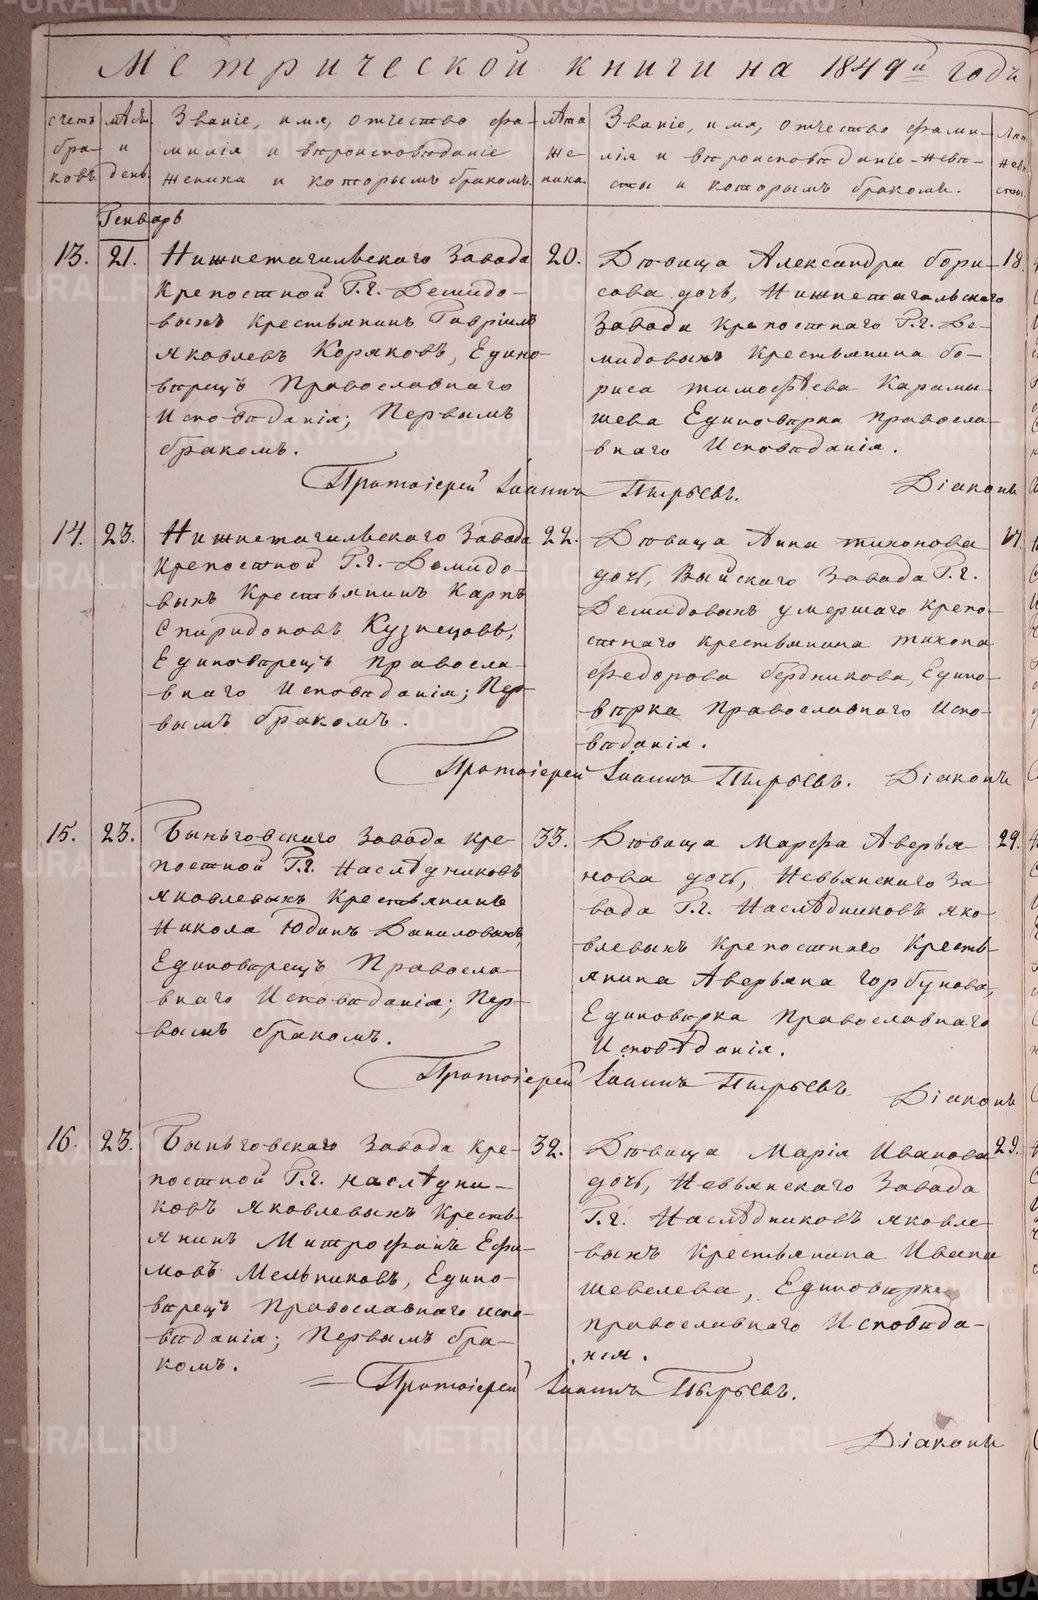 Метрической книги на 1849й годъ
счетъ браковъ
мѣсяц. и день.
Званіе, имя, отчество фамилія и вѣроисповѣданіе жениха и которымъ бракомъ.
лѣта жениха.
Званіе, имя, отчество фамилія и вѣроисповѣданіе невѣсты и которымъ бракомъ.
Генварь
13.
21.
Нижнетагильскаго Завода
крепостной Г.г. Демидо-
выхъ крестьянинъ Гавріилъ
Яковлевъ Коряковъ, Едино-
вѣрецъ Православнаго
Исповѣданія; Первымъ
бракомъ.
20.
Дѣвица Александра бори-
сова дочь, Нижнетагильскаго
Завода крепостнаго Г.г. Де-
мидовыхъ крестьянина бо-
риса тимофѣева Карамы-
шева Единовѣрка правосла-
внаго Исповѣданія.
18.
Протоіерей Іоаннъ Пырьевъ.
Діаконъ
14.
23.
Нижнетагильскаго Завода
крепостной Г.г. Демидо-
выхъ Крестьянинъ Карпъ
Спиридоновъ Кузнецовъ,
Единовѣрецъ правосла-
внаго Исповѣданія; Пер-
вымъ бракомъ.
22.
Дѣвица Анна тихонова
дочь, Выйскаго Завода Г.г.
Демидовыхъ умершаго крепо-
стнаго крестьянина тихона
федорова бердникова, Едино-
вѣрка Православнаго Испо-
вѣданія.
Протоіерей Іоаннъ Пырьевъ.
Діаконъ
15.
23.
Быньговскаго завода кре-
постной Г.г. Наслѣдниковъ
Яковлевыхъ Крестьянинъ
Никола Юдинъ Даниловыхъ,
Единовѣрецъ Правосла-
внаго Исповѣданія; Пер-
вымъ бракомъ.
33.
Дѣвица Марфа Аверья-
нова дочь, Невьянскаго За-
вода Г.г. Наслѣдниковъ Яко-
влевыхъ крепостнаго Кресть-
янина Аверьяна Горбунова,
Единовѣрка Православнаго
Исповѣданія.
29.
Протоіерей Іоаннъ Пырьевъ
Діаконъ
16.
23.
Быньговскаго Завода кре-
постной Г.г. наслѣдни-
ковъ Яковлевыхъ Кресть-
янинъ Митрофанъ Ефи-
мовъ Мельниковъ, Едино-
вѣрецъ Православнаго испо-
вѣданія; Первымъ бра-
комъ.
32.
Дѣвица Марія Иванова
дочь, Невьянскаго Завода
Г.г. Наслѣдниковъ Яковле-
выхъ крестьянина Ивана
шевелева, Единовѣрка
православнаго Исповѣда-
нія.
29.
Протоіерей Іоаннъ Пырьевъ.
Діаконъ